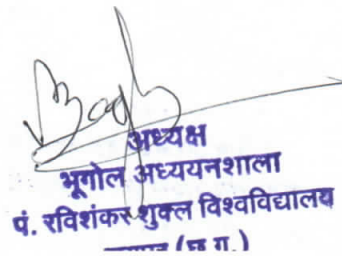 अध्यक्ष
भूगोल अध्ययनशाला
पं. रविशंकर शुक्ल विश्वविद्यालय
(छ.ग.)